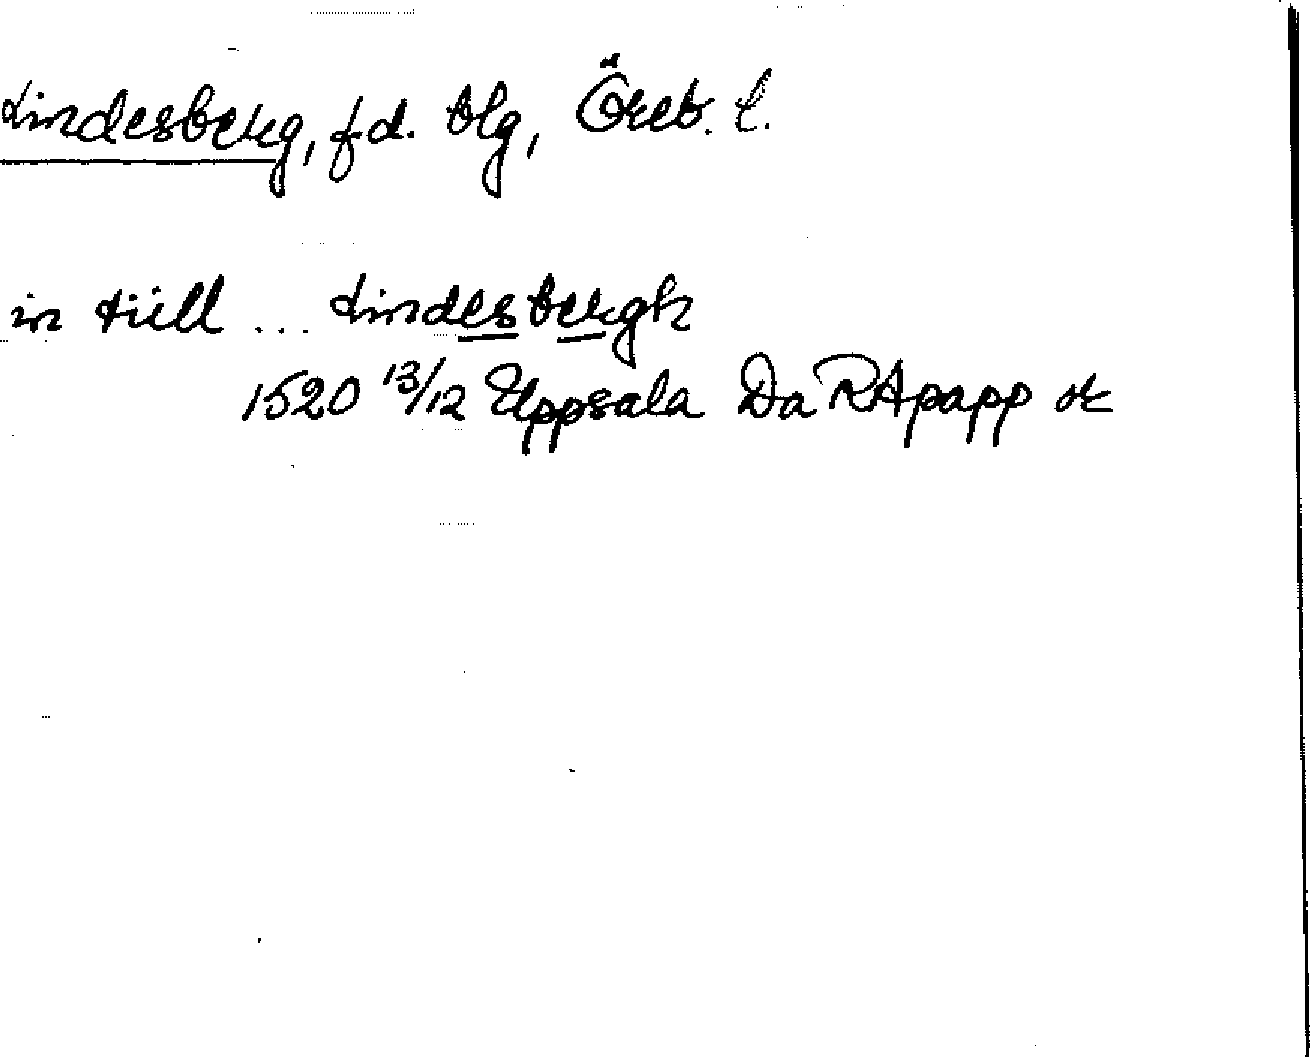 Lindesberg, f.d. blg, Öreb. l.
in tüll ... Lindesbergh
1520 13/12 Uppsala Da RApapp or